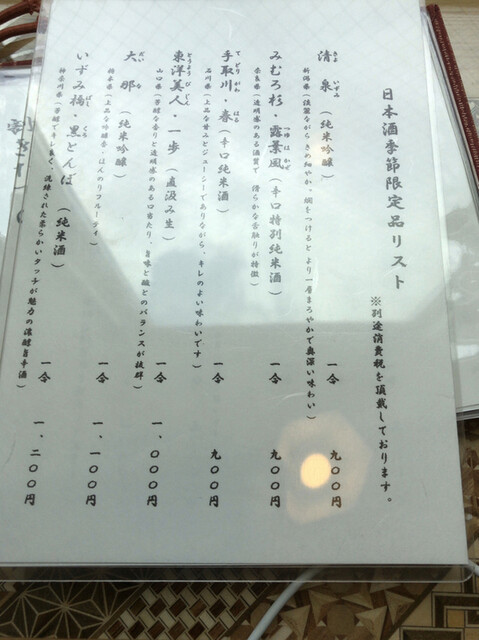 日本酒季節限定品リスト
※別途消費税を頂戴しております。
清泉(純米吟醸) 一合 九〇〇円
きよ いずみ
新潟県(淡麗ながらきめ細やか、燗をつけるとより一層まろやかで奥深い味わい)
みむろ杉・露葉風(辛口特別純米酒) 一合 九〇〇円
すぎ つゆ は かぜ
奈良県(透明感のある酒質で、清らかな舌触りが特徴)
手取川・春(辛口純米酒) 一合 九〇〇円
てどり がわ はる
石川県(上品な甘みとジューシーでありながら、キレのよい味わいです)
東洋美人・一歩(直汲み生) 一合 一、〇〇〇円
とうよう びじん
山口県(芳醇な香りと透明感のある口当たり、旨味と酸とのバランスが抜群)
大那(純米吟醸) 一合 一、一〇〇円
だい な
栃木県(上品な吟醸香・ほんのりフルーティ)
いずみ橋・黒とんぼ(純米酒) 一合 一、二〇〇円
ばし くろ
神奈川県(芳醇でキレ良く、洗練された柔らかいタッチが魅力の濃醇旨辛酒)